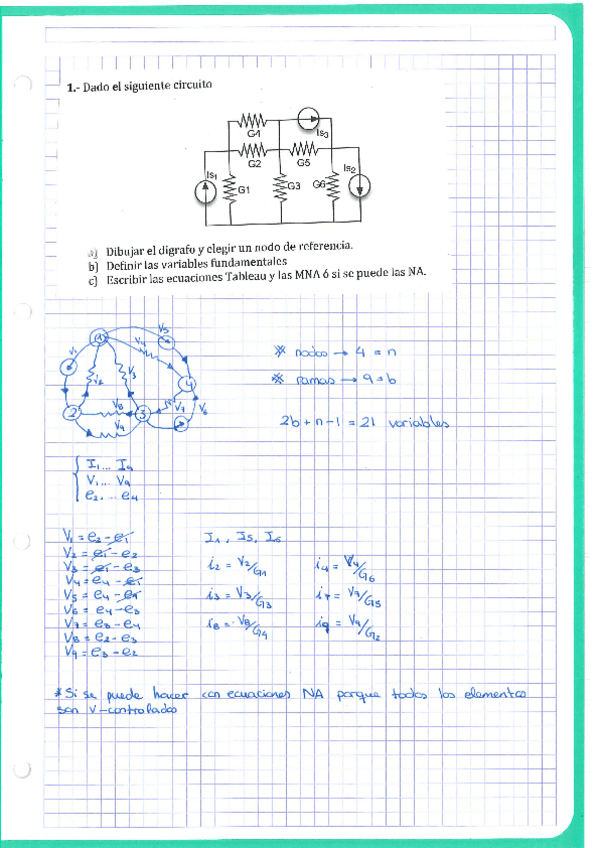 1.- Dado el siguiente circuito
G4
Is3
G2
G5
Is1
Is2
G1
G3
G6
a) Dibujar el digrafo y elegir un nodo de referencia.
b) Definir las variables fundamentales
c) Escribir las ecuaciones Tableau y las MNA ó si se puede las NA.
V5
V4
V1
1
V2
V3
4
2
V8
3
V7
V6
V9
* nodos → 4 = n
* ramas → 9 = b
2b + n - 1 = 21 variables
I1... I9
V1... V9
e2... e4
V1 = e2 - e1
V2 = e1 - e2
V3 = e1 - e3
V4 = e4 - e1
V5 = e4 - e1
V6 = e4 - e3
V7 = e3 - e4
V8 = e2 - e3
V9 = e3 - e2
I1, I5, I6
i2 = V2/G1
i3 = V3/G3
i8 = V8/G4
i4 = V4/G6
i7 = V9/G5
i9 = V9/G2
* Si se puede hacer con ecuaciones NA porque todos los elementos
son V-controlados